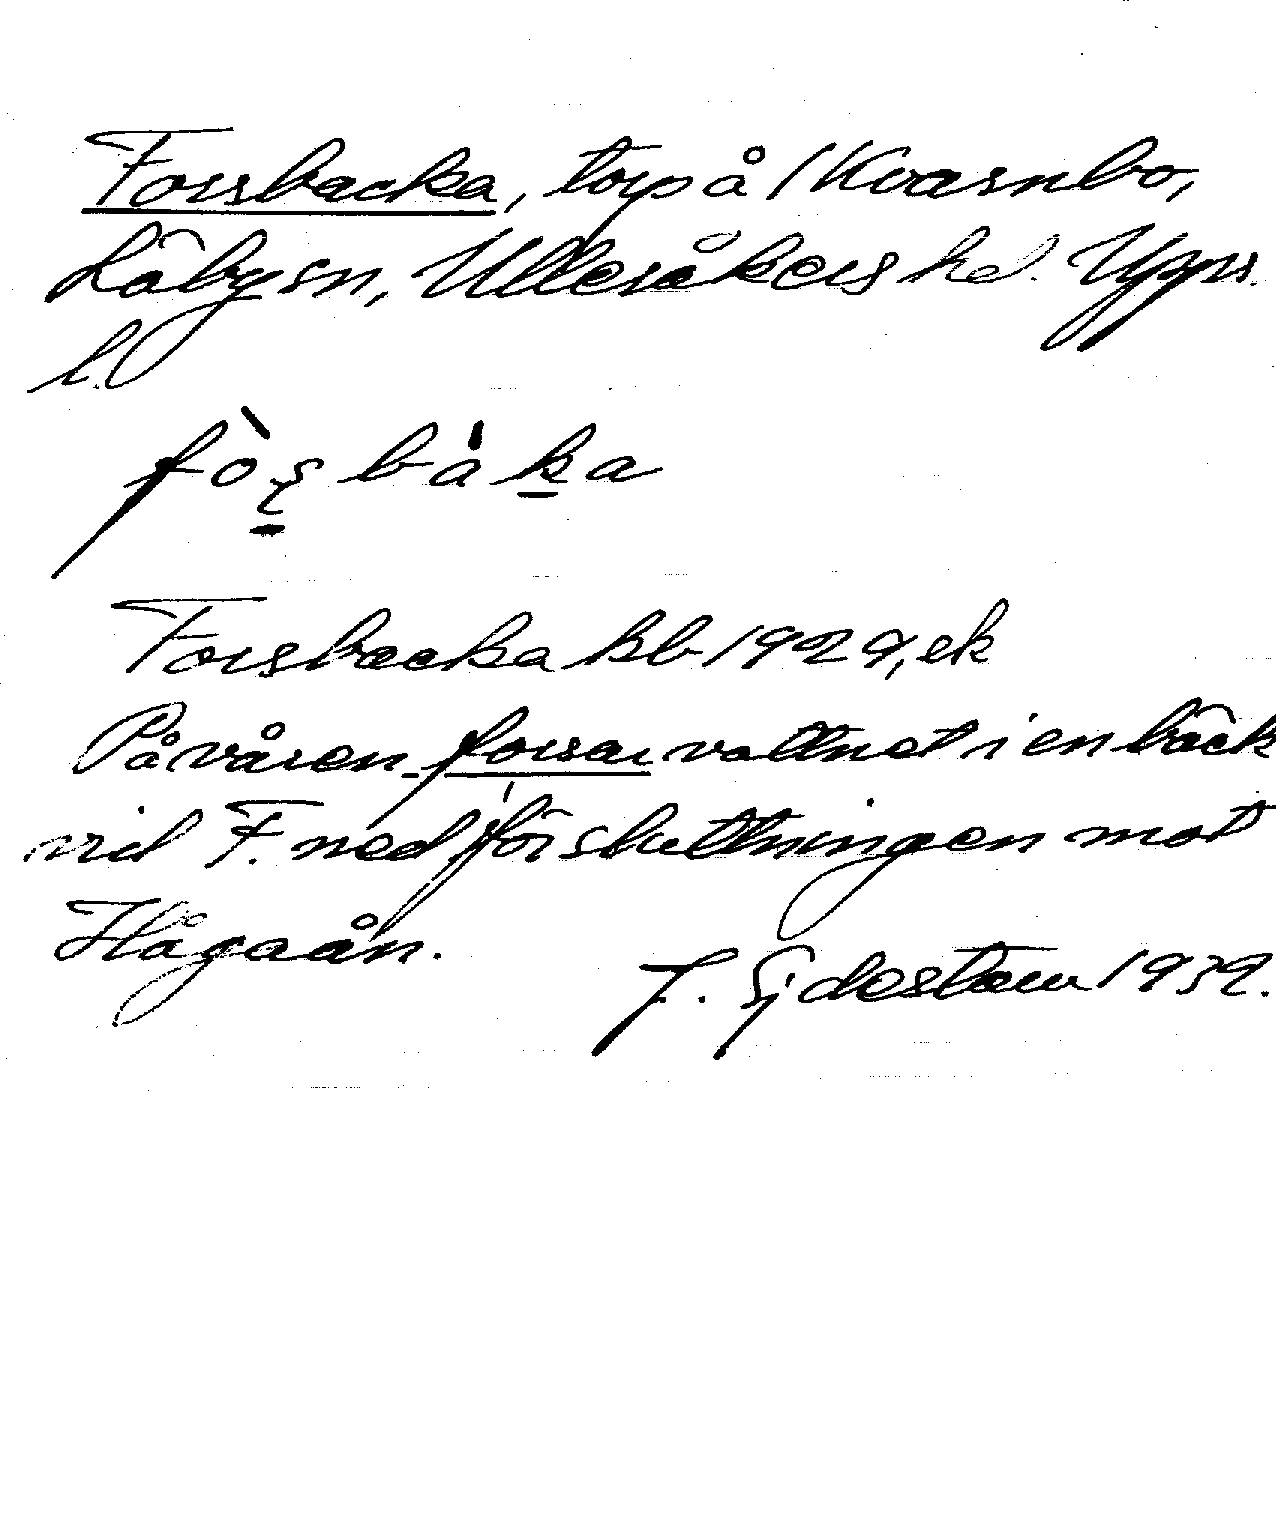 Forsbacka, torp å 1 Kvarnbo,
Läby sn, Ulleråkers hd. Upps.
l.
fòʂbáka
Forsbacka kb 1929, ek
På våren forsar vattnet i en bäck
vid F. nedför sluttningen mot
Hågaån.
F. Sjdestam 1939.